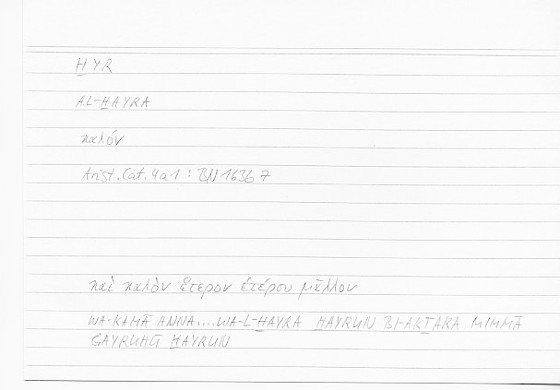 H̲YR
AL-H̲AYRA
καλόν
Arist. Cat. 4a1 : BN 163b7
καὶ καλὸν ἕτερον ἑτέρου μᾶλλον
WA-KAMĀ ANNA....WA-L-H̲AYRA H̲AYRUN BI-AKT̲ARA MIMMĀ
ĠAYRUHŪ H̲AYRUN